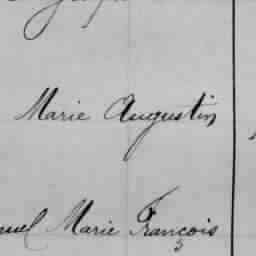 Marie Augustin
Marie François